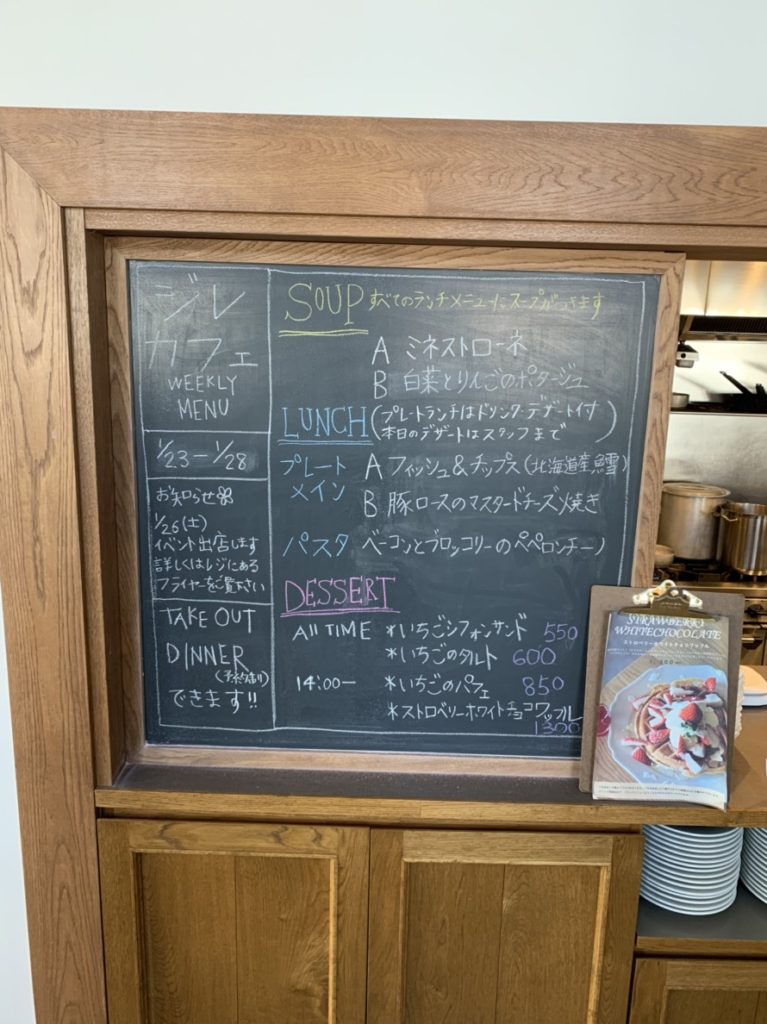 ジレ
カフェ
WEEKLY
MENU
1/23-1/28
お知らせ
1/26(土)
イベント出店します
詳しくはレジにある
フライヤーをご覧下さい
TAKE OUT
DINNER
できます!!
SOUP すべてのランチメニューにスープがつきます
A ミネストローネ
B 白菜とりんごのポタージュ
LUNCH (プレートランチはドリンク・デザート付
本日のデザートはスタッフまで)
プレート
メイン
A フィッシュ&チップス(北海道産鱈)
B 豚ロースのマスタードチーズ焼き
パスタ ベーコンとブロッコリーのペペロンチーノ
DESSERT
All TIME *いちごシフォンサンド 550
*いちごのタルト 600
14:00- *いちごのパフェ 850
*ストロベリーホワイトチョコワッフル
1300
STRAWBERRY
WHITECHOCOLATE
ストロベリーホワイトチョコワッフル